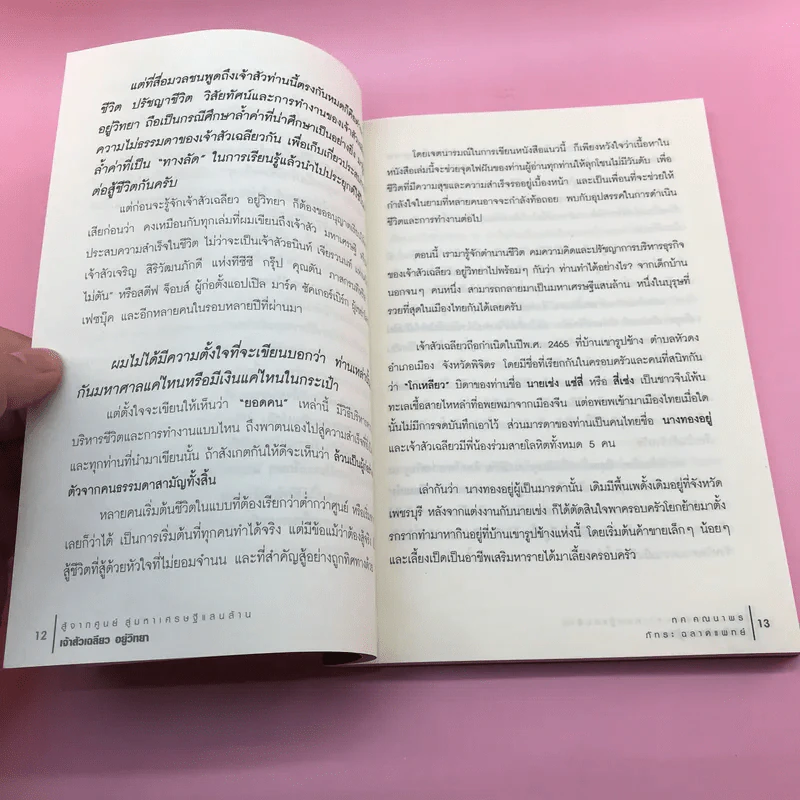 แต่ที่สื่อมวลชนพูดถึงเจ้าสัวท่านนี้ตรงกันหมดก็คือ
ชีวิต ปรัชญาชีวิต วิสัยทัศน์และการทำงานของเจ้าสัว
อยู่วิทยา ถือเป็นกรณีศึกษาล้ำค่าที่น่าศึกษาเป็นอย่างยิ่ง
ความไม่ธรรมดาของเจ้าสัวเฉลียวกัน เพื่อเก็บเกี่ยวประสบ
ล้ำค่าที่เป็น "ทางลัด" ในการเรียนรู้แล้วนำไปประยุกต์ใช้
ต่อสู้ชีวิตกันครับ
แต่ก่อนจะรู้จักเจ้าสัวเฉลียว อยู่วิทยา ก็ต้องขออนุญาต
เสียก่อนว่า คงเหมือนกับทุกเล่มที่ผมเขียนถึงเจ้าสัว มหาเศรษฐี
ประสบความสำเร็จในชีวิต ไม่ว่าจะเป็นเจ้าสัวธนินท์ เจียรวนนท์ แห่ง
เจ้าสัวเจริญ สิริวัฒนภักดี แห่งทีซีซี กรุ๊ป คุณตัน ภาสกรนที
ไม่ตัน" หรือสตีฟ จ็อบส์ ผู้ก่อตั้งแอปเปิล มาร์ค ซัคเกอร์เบิร์ก
เฟซบุ๊ค และอีกหลายคนในรอบหลายปีที่ผ่านมา
ผมไม่ได้มีความตั้งใจที่จะเขียนบอกว่า ท่านเหล่านี้
กันมหาศาลแค่ไหนหรือมีเงินแค่ไหนในกระเป๋า
แต่ตั้งใจจะเขียนให้เห็นว่า "ยอดคน" เหล่านี้ มีวิธี
บริหารชีวิตและการทำงานแบบไหน ถึงพาตนเองไปสู่ความสำเร็จ
และทุกท่านที่นำมาเขียนนั้น ถ้าสังเกตกันให้ดีจะเห็นว่า ล้วนเป็น
ตัวจากคนธรรมดาสามัญทั้งสิ้น
หลายคนเริ่มต้นชีวิตในแบบที่ต้องเรียกว่าต่ำกว่าศูนย์
เลยก็ว่าได้ เป็นการเริ่มต้นที่ทุกคนทำได้จริง แต่มีข้อแม้ว่าต้อง
สู้ชีวิตที่สู้ด้วยหัวใจที่ไม่ยอมจำนน และที่สำคัญสู้อย่างถูกทิศทางด้วย
12
สู้จากศูนย์ สู่มหาเศรษฐีแสนล้าน
เจ้าสัวเฉลียว อยู่วิทยา
โดยเจตนารมณ์ในการเขียนหนังสือแนวนี้ ก็เพียงหวังใจว่าเนื้อหาใน
หนังสือเล่มนี้จะช่วยจุดไฟฝันของท่านผู้อ่านทุกท่านให้ลุกโชนไม่มีวันดับ เพื่อ
ชีวิตที่มีความสุขและความสำเร็จรออยู่เบื้องหน้า และเป็นเพื่อนที่จะช่วยให้
กำลังใจในยามที่หลายคนอาจจะกำลังท้อถอย พบกับอุปสรรคในการดำเนิน
ชีวิตและการทำงานต่อไป
ตอนนี้ เรามารู้จักตำนานชีวิต คมความคิดและปรัชญาการบริหารธุรกิจ
ของเจ้าสัวเฉลียว อยู่วิทยาไปพร้อมๆ กันว่า ท่านทำได้อย่างไร? จากเด็กบ้าน
นอกจนๆ คนหนึ่ง สามารถกลายมาเป็นมหาเศรษฐีแสนล้าน หนึ่งในบุรุษที่
รวยที่สุดในเมืองไทยกันได้เลยครับ
เจ้าสัวเฉลียวถือกำเนิดในปีพ.ศ. 2465 ที่บ้านเขารูปช้าง ตำบลหัวดง
อำเภอเมือง จังหวัดพิจิตร โดยมีชื่อที่เรียกกันในครอบครัวและคนที่สนิทกัน
ว่า "โกเหลียว" บิดาของท่านชื่อ นายเซ่ง แซ่สี่ หรือ สี่เซ่ง เป็นชาวจีนโพ้น
ทะเลเชื้อสายไหหลำที่อพยพมาจากเมืองจีน แต่อพยพเข้ามาเมืองไทยเมื่อใด
นั้นไม่มีการจดบันทึกเอาไว้ ส่วนมารดาของท่านเป็นคนไทยชื่อ นางทองอยู่
และเจ้าสัวเฉลียวมีพี่น้องร่วมสายโลหิตทั้งหมด 5 คน
เล่ากันว่า นางทองอยู่ผู้เป็นมารดานั้น เดิมมีพื้นเพตั้งเดิมอยู่ที่จังหวัด
เพชรบุรี หลังจากแต่งงานกับนายเซ่ง ก็ได้ตัดสินใจพาครอบครัวโยกย้ายมาตั้ง
รกรากทำมาหากินอยู่ที่บ้านเขารูปช้างแห่งนี้ โดยเริ่มต้นค้าขายเล็กๆ น้อยๆ
และเลี้ยงเป็ดเป็นอาชีพเสริมหารายได้มาเลี้ยงครอบครัว
ทศ คณนาพร
ภัทระ ฉลาดแพทย์
13